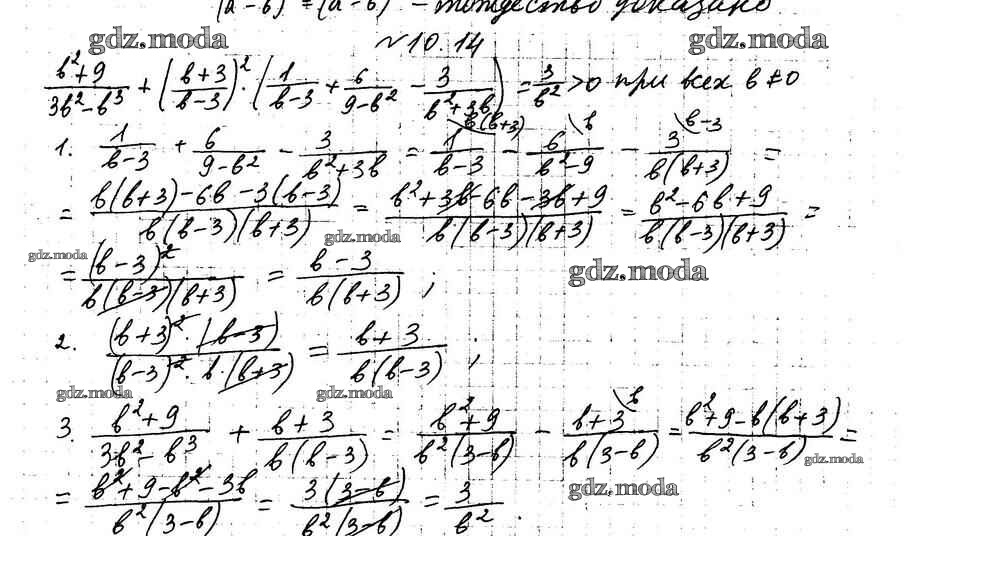 (a-b) = (a-b) - тождество доказано
gdz.moda
№10.14
gdz.moda
(b²+9)/(3b²-b³) + ((b+3)/(b-3))² · (1/(b-3) + 6/(9-b²) - 3/(b²+3b)) = 3/b² > 0 при всех b ≠ 0
1. 1/(b-3) + 6/(9-b²) - 3/(b²+3b) = 1/(b-3) \b(b+3) - 6/(b²-9) \b - 3/(b(b+3)) \b-3 =
= (b(b+3)-6b-3(b-3))/(b(b-3)(b+3)) = (b²+3b-6b-3b+9)/(b(b-3)(b+3)) = (b²-6b+9)/(b(b-3)(b+3)) =
gdz.moda
gdz.moda
= (b-3)²/(b(b-3)(b+3)) = (b-3)/(b(b+3));
gdz.moda
2. ((b+3)²·(b-3))/((b-3)²·b·(b+3)) = (b+3)/(b(b-3)),
gdz.moda
gdz.moda
3. (b²+9)/(3b²-b³) + (b+3)/(b(b-3)) = (b²+9)/(b²(3-b)) - (b+3)/(b(3-b)) \b = (b²+9-b(b+3))/(b²(3-b)) =
gdz.moda
= (b²+9-b²-3b)/(b²(3-b)) = 3(3-b)/(b²(3-b)) = 3/b².
gdz.moda